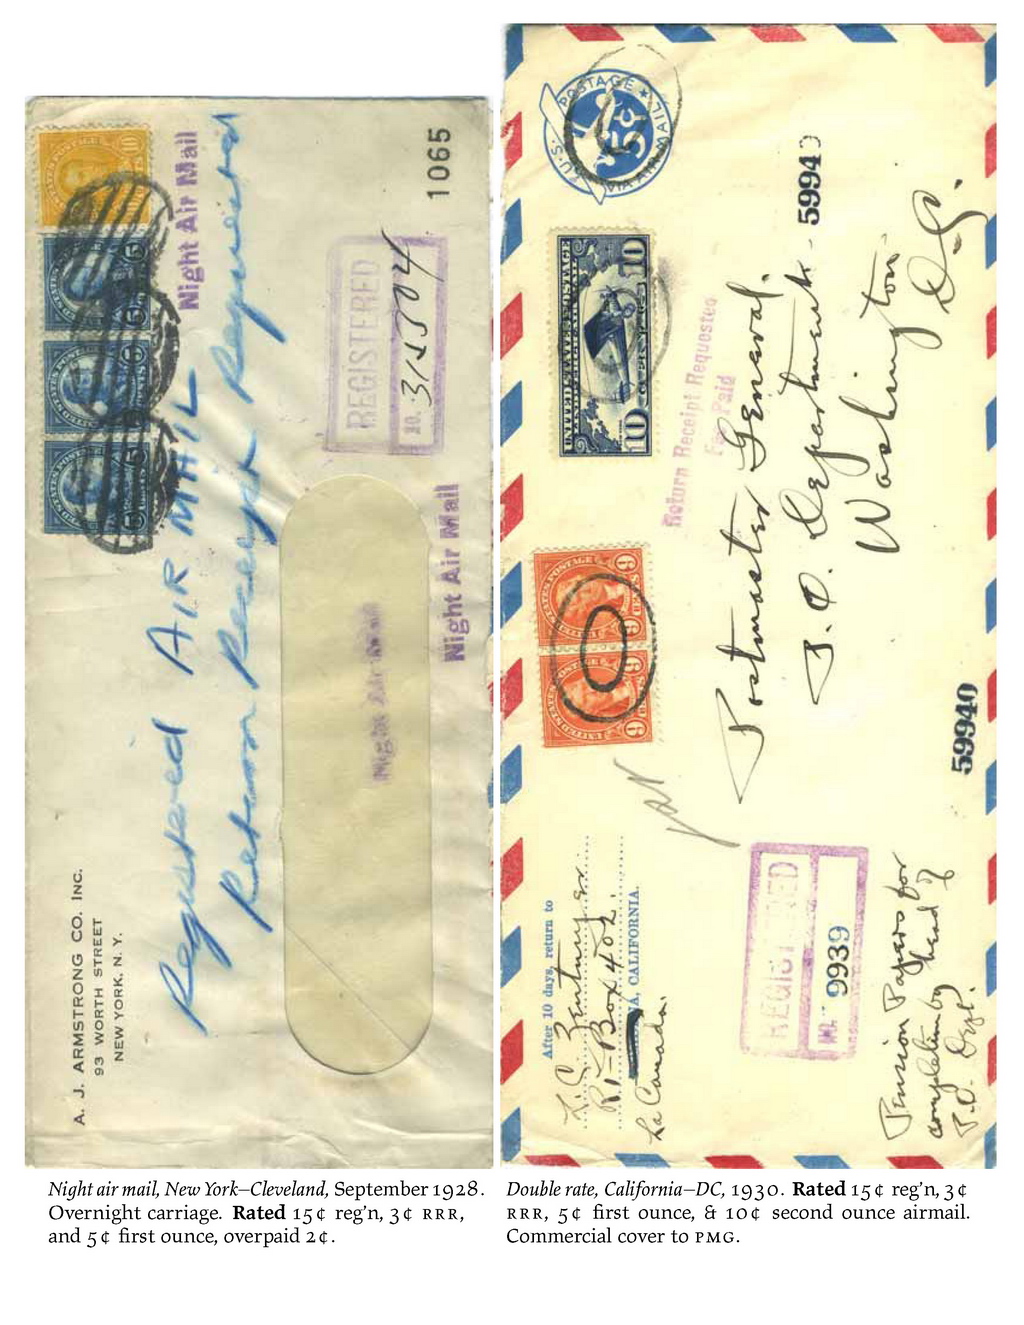 A. J. ARMSTRONG CO. INC.
93 WORTH STREET
NEW YORK, N. Y.
Registered AIR MAIL
Return Receipt Requested
Night Air Mail
REGISTERED
NO.
Night Air Mail
Night Air Mail
1065
UNITED STATES POSTAGE
10
5
5
5
U.S. POSTAGE AIR MAIL
VIA AIR MAIL
5¢
UNITED STATES POSTAGE
10 10
6 6
Return Receipt Requested
Fee Paid
Postmaster General.
P.O. Department.
Washington
D.C.
59940
59940
After 10 days, return to
R1-Box 402.
CALIFORNIA.
La Canada.
REGISTERED
NO. 9939
Pension Papers for
completion by head of
P.O. Dept.
Night air mail, New York–Cleveland, September 1928.
Overnight carriage. Rated 15¢ reg'n, 3¢ RRR,
and 5¢ first ounce, overpaid 2¢.
Double rate, California–DC, 1930. Rated 15¢ reg'n, 3¢
RRR, 5¢ first ounce, & 10¢ second ounce airmail.
Commercial cover to PMG.